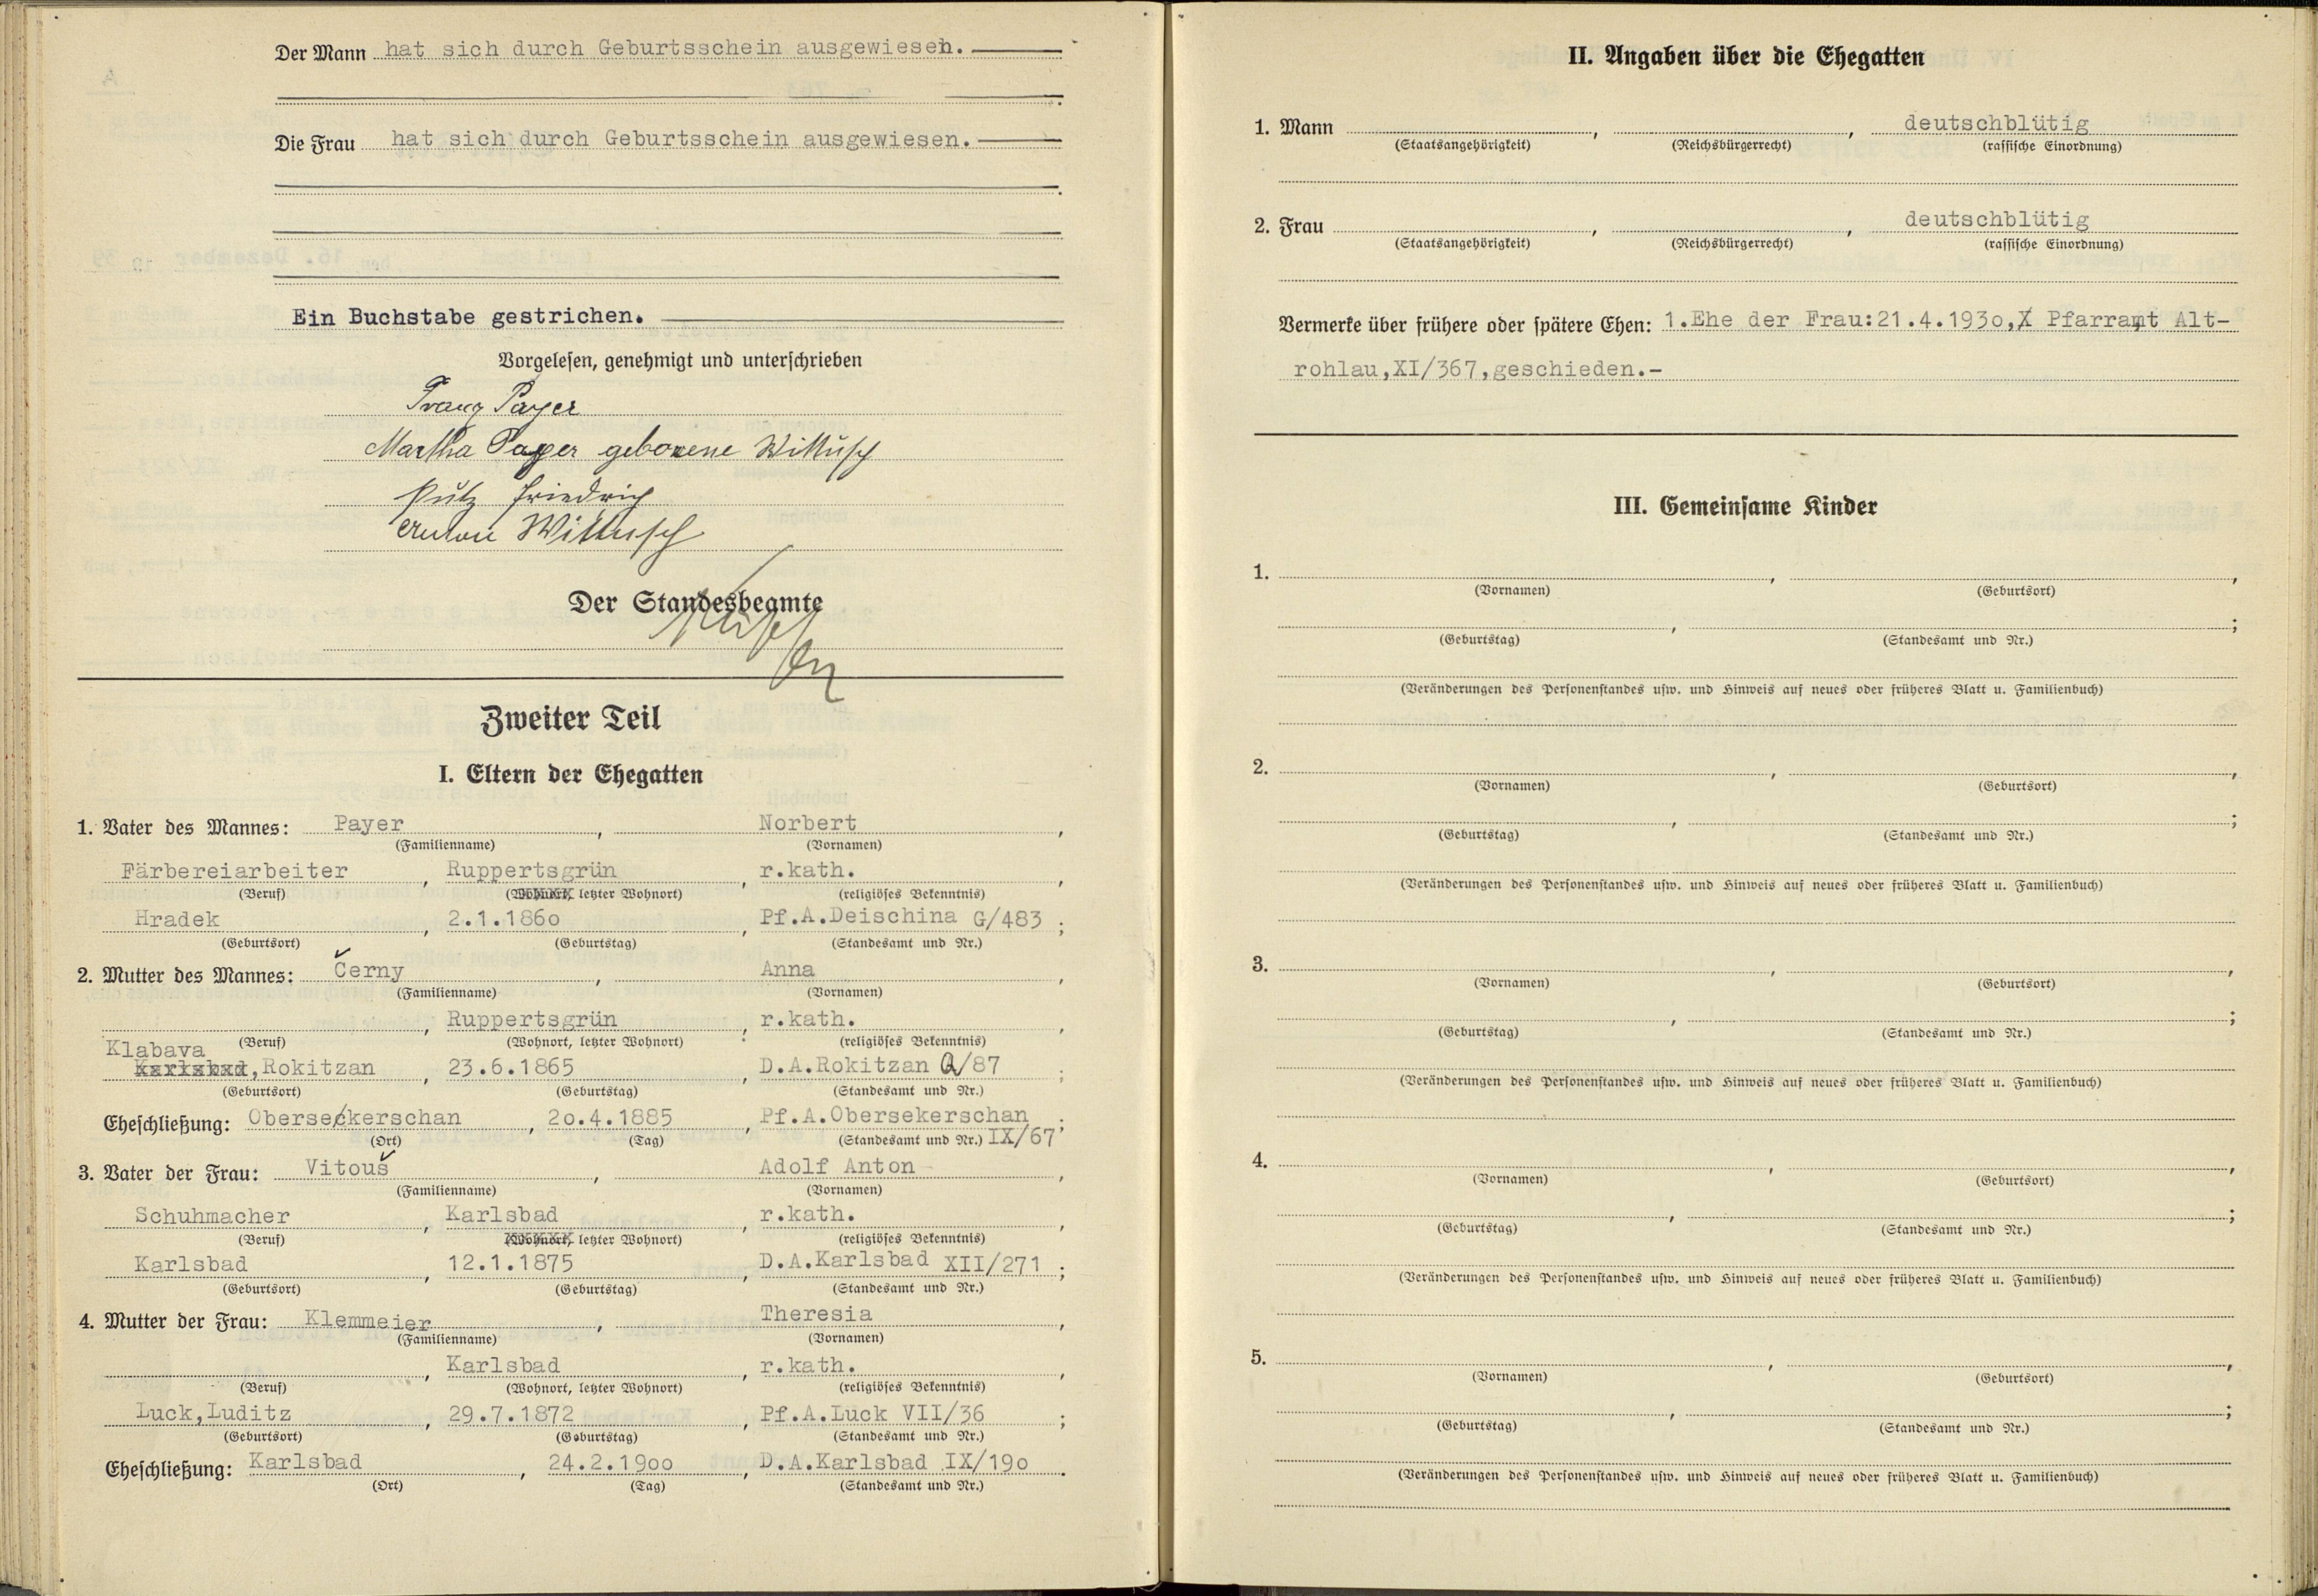 Der Mann hat sich durch Geburtsschein ausgewiesen.
Die Frau hat sich durch Geburtsschein ausgewiesen.
Ein Buchstabe gestrichen.
Vorgelesen, genehmigt und unterschrieben
Franz Payer
Martha Payer geborene Wittusch
Putz Friedrich
Anton Wittusch
Der Standesbeamte
Zweiter Teil
I. Eltern der Ehegatten
1. Vater des Mannes: Payer, Norbert,
(Familienname) (Vornamen)
Färbereiarbeiter, Ruppertsgrün, r.kath.,
(Beruf) (Wohnort, letzter Wohnort) (religiöses Bekenntnis)
Hradek, 2.1.1860, Pf.A.Deischina G/483;
(Geburtsort) (Geburtstag) (Standesamt und Nr.)
2. Mutter des Mannes: Černy, Anna,
(Familienname) (Vornamen)
, Ruppertsgrün, r.kath.,
(Beruf) (Wohnort, letzter Wohnort) (religiöses Bekenntnis)
Klabava
Karlsbad,Rokitzan, 23.6.1865, D.A.Rokitzan Q/87;
(Geburtsort) (Geburtstag) (Standesamt und Nr.)
Eheschließung: Oberseckerschan, 20.4.1885, Pf.A.Obersekerschan;
(Ort) (Tag) (Standesamt und Nr.) IX/67
3. Vater der Frau: Vitouš, Adolf Anton,
(Familienname) (Vornamen)
Schuhmacher, Karlsbad, r.kath.,
(Beruf) (Wohnort, letzter Wohnort) (religiöses Bekenntnis)
Karlsbad, 12.1.1875, D.A.Karlsbad XII/271;
(Geburtsort) (Geburtstag) (Standesamt und Nr.)
4. Mutter der Frau: Klemmeier, Theresia,
(Familienname) (Vornamen)
, Karlsbad, r.kath.,
(Beruf) (Wohnort, letzter Wohnort) (religiöses Bekenntnis)
Luck,Luditz, 29.7.1872, Pf.A.Luck VII/36;
(Geburtsort) (Geburtstag) (Standesamt und Nr.)
Eheschließung: Karlsbad, 24.2.1900, D.A.Karlsbad IX/190.
(Ort) (Tag) (Standesamt und Nr.)
II. Angaben über die Ehegatten
1. Mann , , deutschblütig
(Staatsangehörigkeit) (Reichsbürgerrecht) (rassische Einordnung)
2. Frau , , deutschblütig
(Staatsangehörigkeit) (Reichsbürgerrecht) (rassische Einordnung)
Vermerke über frühere oder spätere Ehen: 1.Ehe der Frau:21.4.1930,X Pfarramt Alt-
rohlau,XI/367,geschieden.-
III. Gemeinsame Kinder
1. , ,
(Vornamen) (Geburtsort)
, ;
(Geburtstag) (Standesamt und Nr.)
(Veränderungen des Personenstandes usw. und Hinweis auf neues oder früheres Blatt u. Familienbuch)
2. , ,
(Vornamen) (Geburtsort)
, ;
(Geburtstag) (Standesamt und Nr.)
(Veränderungen des Personenstandes usw. und Hinweis auf neues oder früheres Blatt u. Familienbuch)
3. , ,
(Vornamen) (Geburtsort)
, ;
(Geburtstag) (Standesamt und Nr.)
(Veränderungen des Personenstandes usw. und Hinweis auf neues oder früheres Blatt u. Familienbuch)
4. , ,
(Vornamen) (Geburtsort)
, ;
(Geburtstag) (Standesamt und Nr.)
(Veränderungen des Personenstandes usw. und Hinweis auf neues oder früheres Blatt u. Familienbuch)
5. , ,
(Vornamen) (Geburtsort)
, ;
(Geburtstag) (Standesamt und Nr.)
(Veränderungen des Personenstandes usw. und Hinweis auf neues oder früheres Blatt u. Familienbuch)